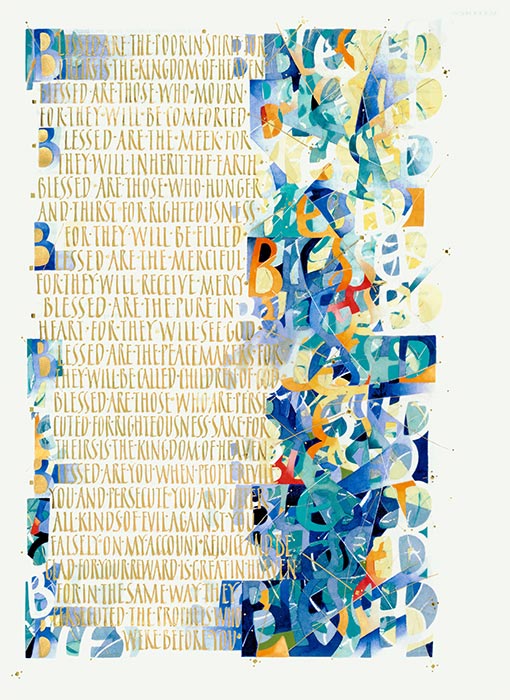 BLESSED·ARE·THE·POOR·IN·SPIRIT·FOR
THEIRS·IS·THE·KINGDOM·OF·HEAVEN
BLESSED·ARE·THOSE·WHO·MOURN
FOR·THEY·WILL·BE·COMFORTED·
BLESSED·ARE·THE·MEEK·FOR
THEY·WILL·INHERIT·THE·EARTH·
BLESSED·ARE·THOSE·WHO·HUNGER
AND·THIRST·FOR·RIGHTEOUSNESS
FOR·THEY·WILL·BE·FILLED
BLESSED·ARE·THE·MERCIFUL·
FOR·THEY·WILL·RECEIVE·MERCY·
BLESSED·ARE·THE·PURE·IN
HEART·FOR·THEY·WILL·SEE·GOD·
BLESSED·ARE·THE·PEACEMAKERS·FOR
THEY·WILL·BE·CALLED·CHILDREN·OF·GOD
BLESSED·ARE·THOSE·WHO·ARE·PERSE
CUTED·FOR·RIGHTEOUSNESS·SAKE·FOR
THEIRS·IS·THE·KINGDOM·OF·HEAVEN·
BLESSED·ARE·YOU·WHEN·PEOPLE·REVILE
YOU·AND·PERSECUTE·YOU·AND·UTTER
ALL·KINDS·OF·EVIL·AGAINST·YOU
FALSELY·ON·MY·ACCOUNT·REJOICE·AND·BE
GLAD·FOR·YOUR·REWARD·IS·GREAT·IN·HEAVEN
FOR·IN·THE·SAME·WAY·THEY
PERSECUTED·THE·PROPHETS·WHO
WERE·BEFORE·YOU·